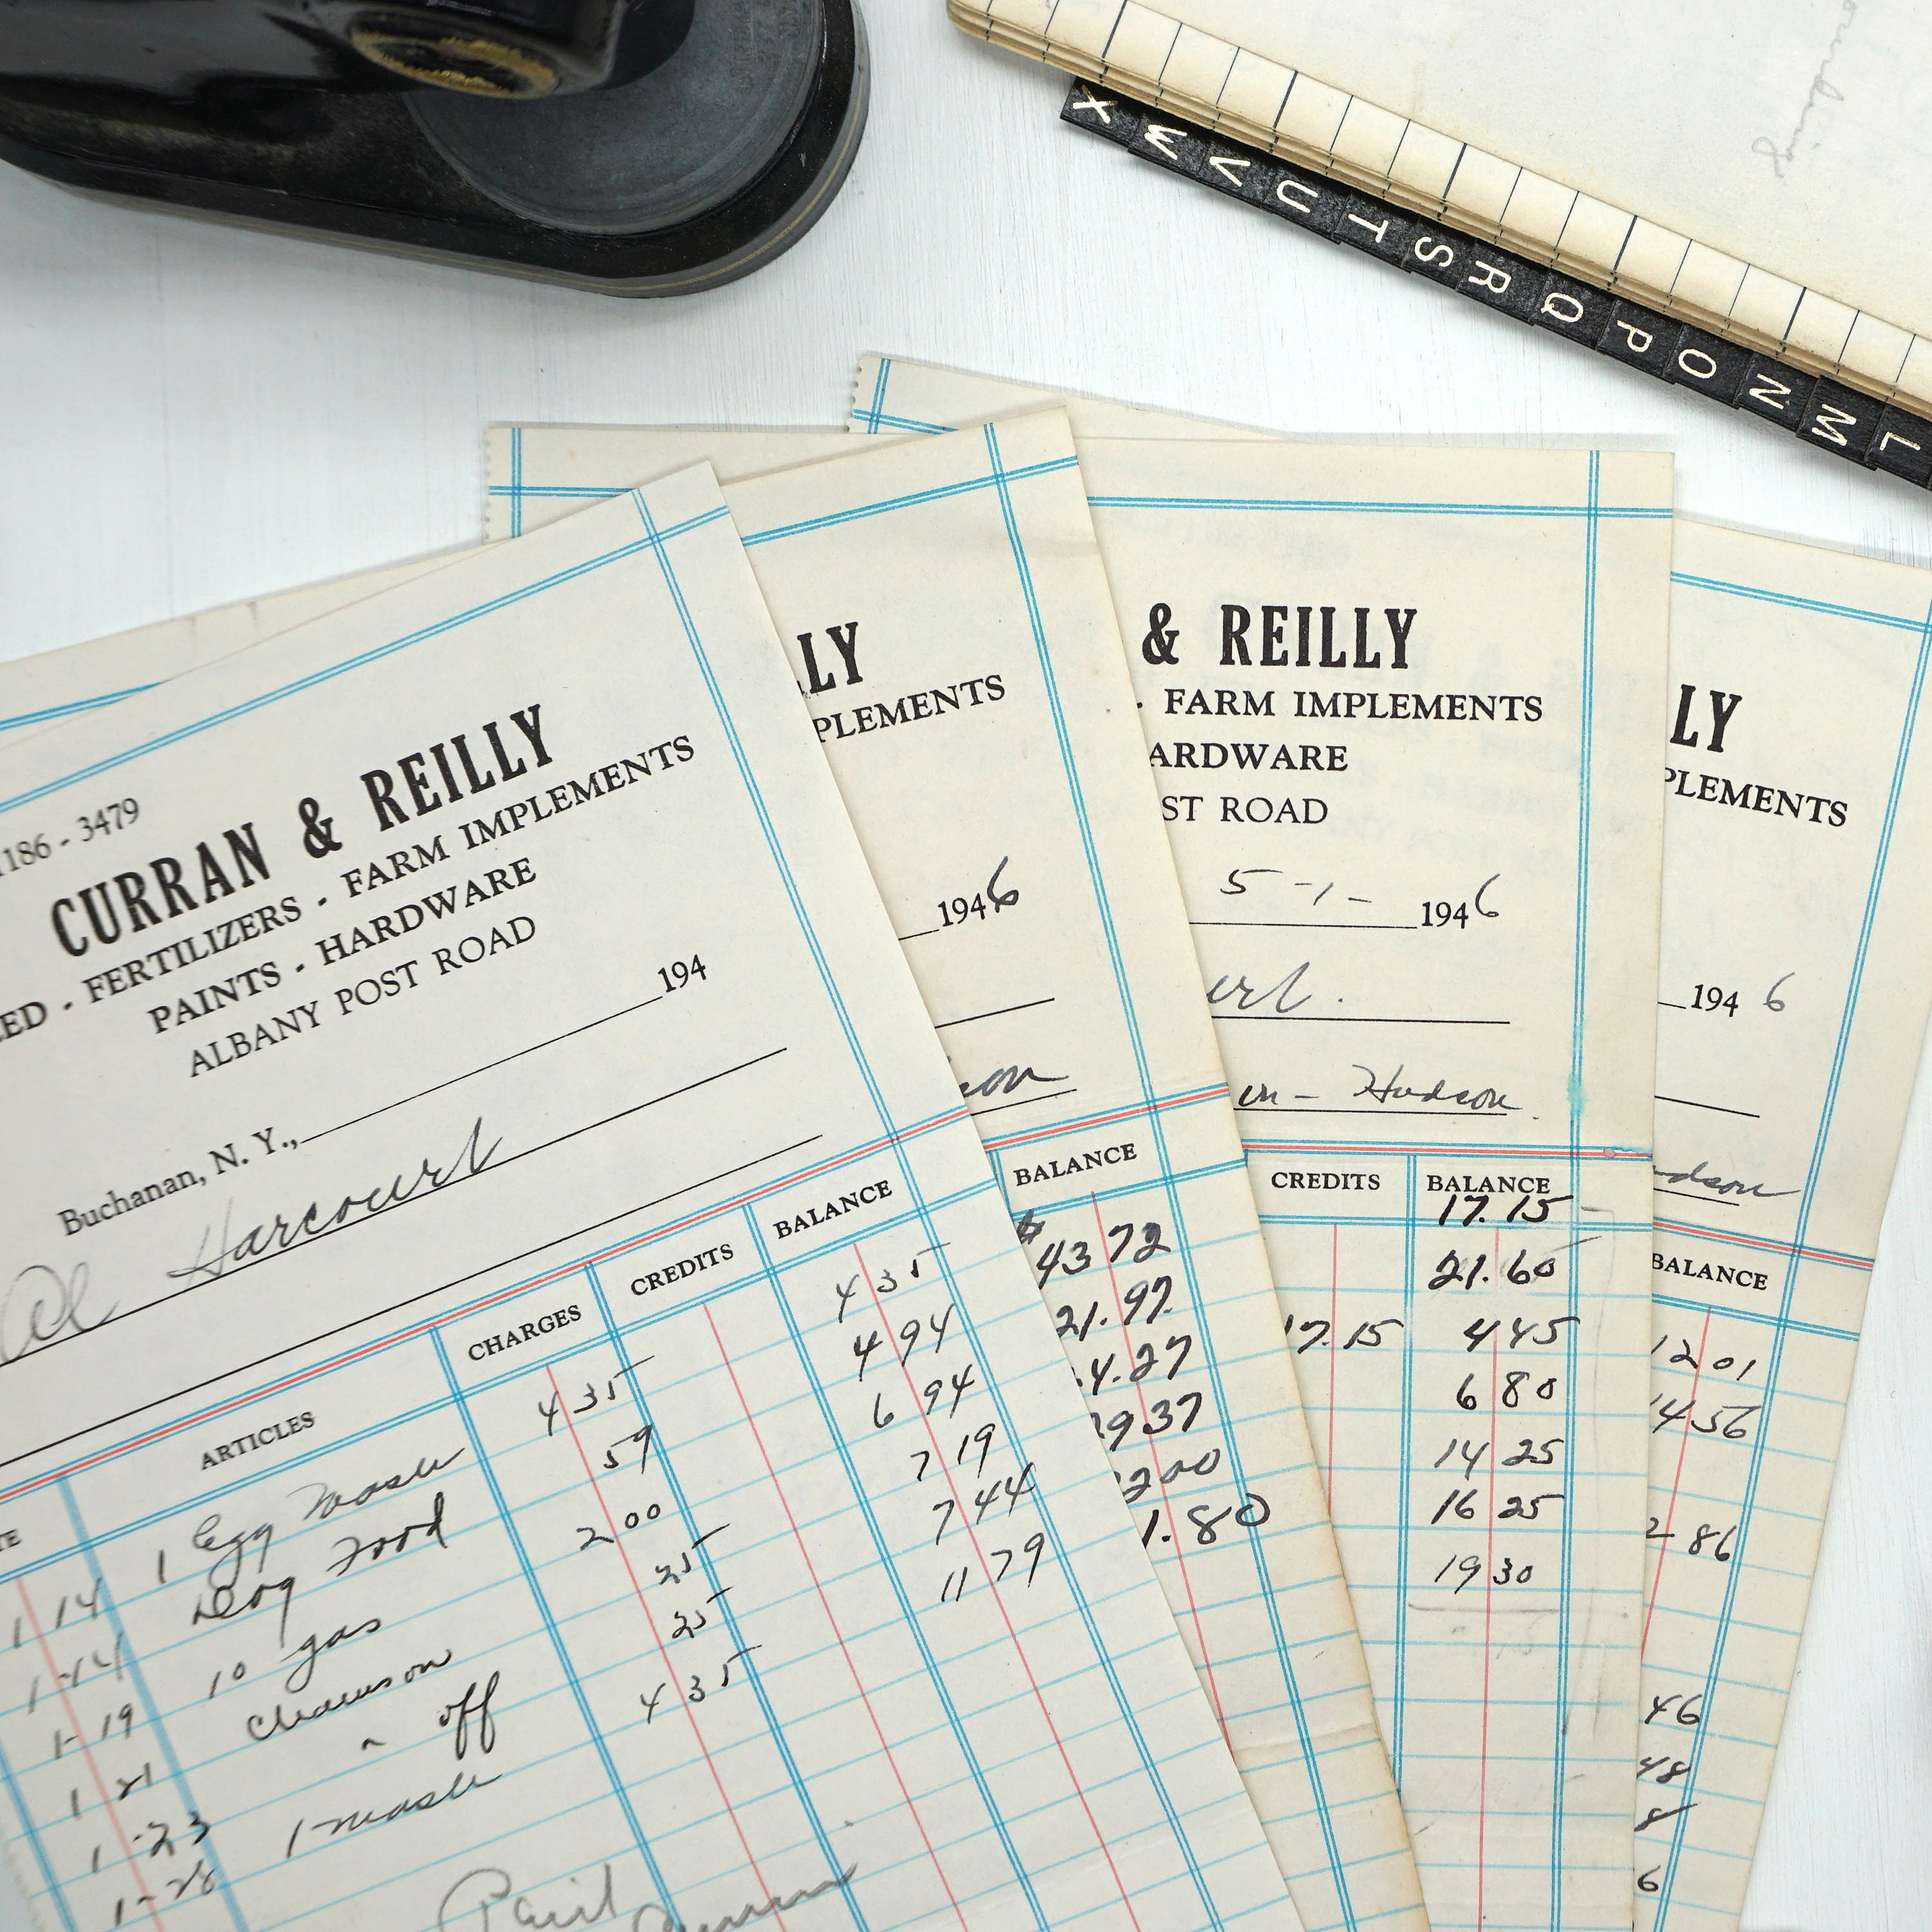 X W V U T S R Q P O N M L
186 - 3479
CURRAN & REILLY
ED - FERTILIZERS - FARM IMPLEMENTS
PAINTS - HARDWARE
ALBANY POST ROAD
Buchanan, N. Y., 194
Al Harcourt
TE ARTICLES CHARGES CREDITS BALANCE
1 14 1 Egg Mash 4 35 4 35
1-14 Dog Food 59 4 94
1-19 10 gas 2 00 6 94
1 21 25 7 19
1-23 " off 25 7 44
1-28 1 mash 4 35 11 79
Paid
LY
PLEMENTS
1946
son
BALANCE
$43 72
21.97
4.27
937
200
1.80
& REILLY
- FARM IMPLEMENTS
ARDWARE
ST ROAD
5-1- 1946
urt.
on - Hudson.
CREDITS BALANCE
17.15
21.60
17.15 4 45
6 80
14 25
16 25
19 30
LY
PLEMENTS
1946
dson
BALANCE
12 01
14 56
2 86
46
48
8
6